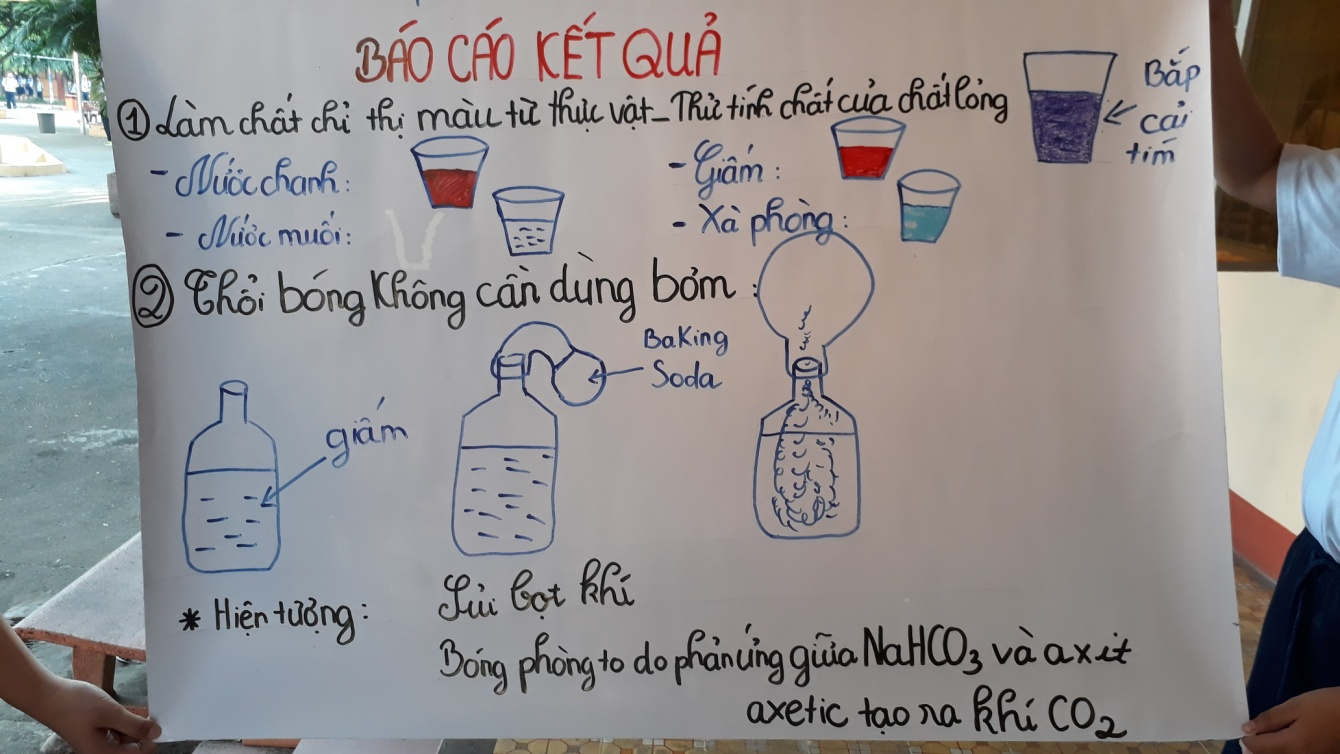 BÁO CÁO KẾT QUẢ
① Làm chất chỉ thị màu từ thực vật_Thử tính chất của chất lỏng
Bắp
cải
tím
- Nước chanh:
- Giấm:
- Nước muối:
- Xà phòng:
② Thổi bóng không cần dùng bơm:
Baking
Soda
giấm
* Hiện tượng: Sủi bọt khí
Bóng phồng to do phản ứng giữa NaHCO₃ và axit
axetic tạo ra khí CO₂